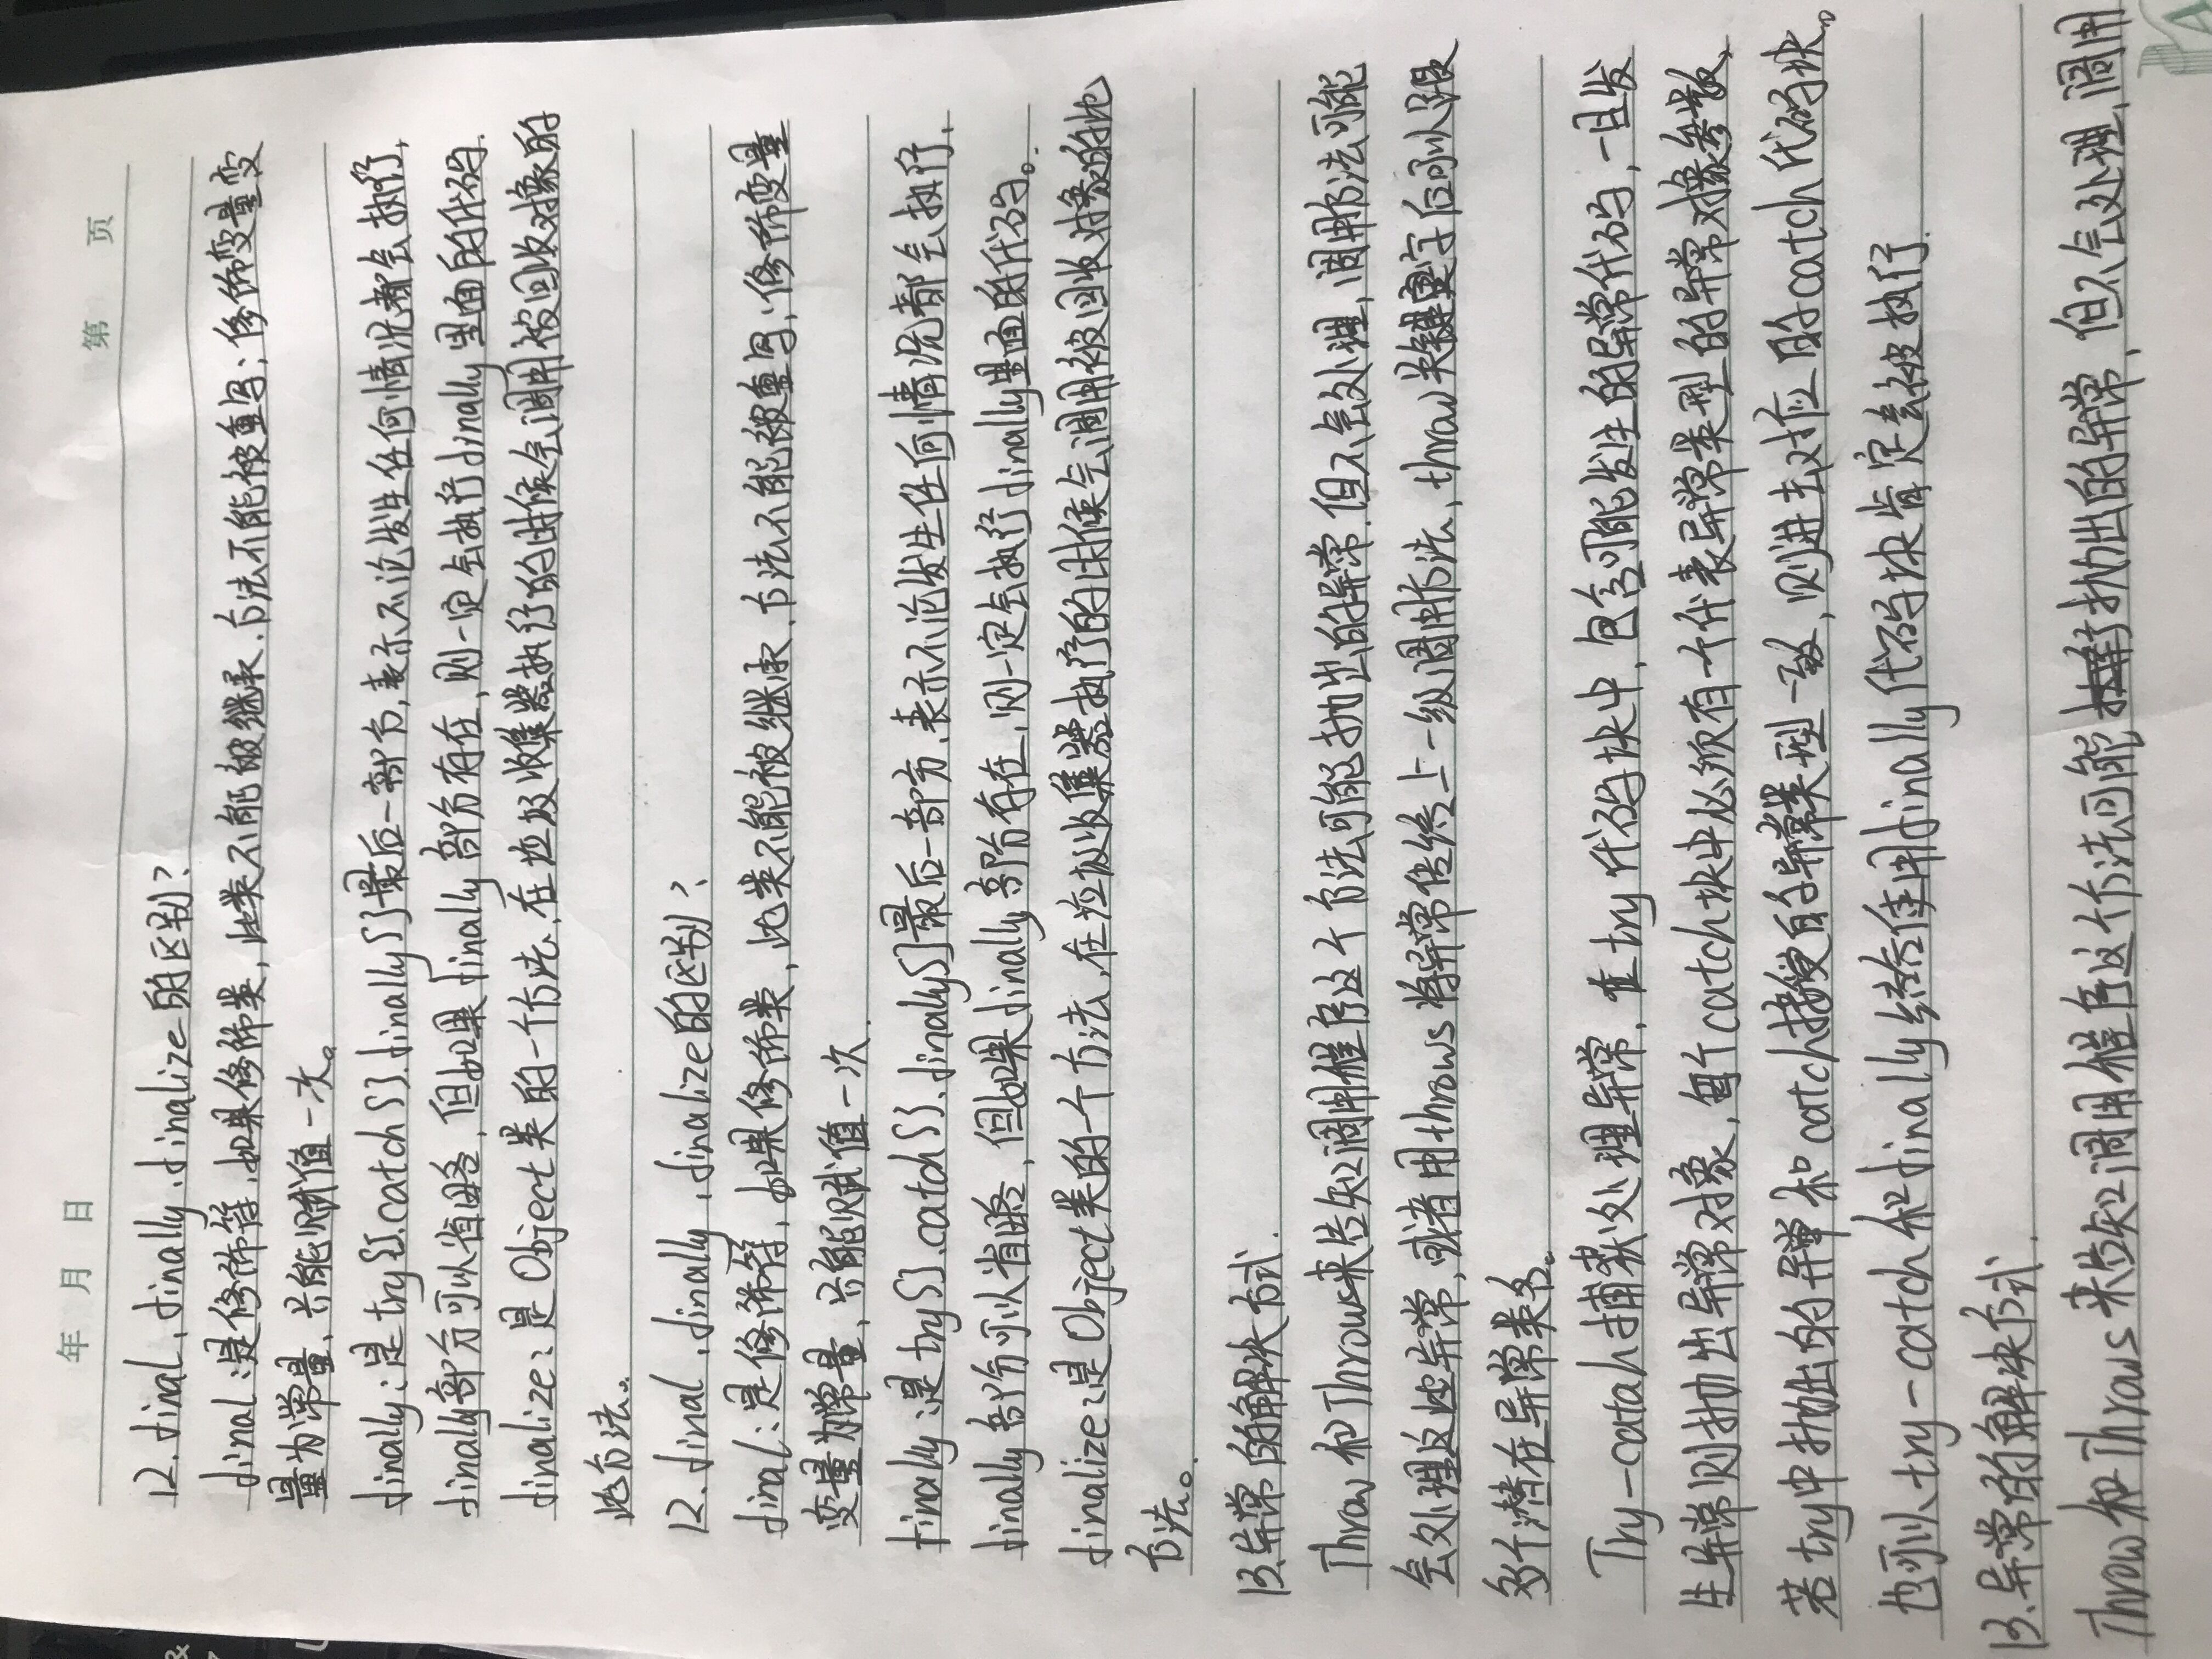 年 月 日
第 页
12. final、finally、finalize的区别?
final:是修饰符,如果修饰类,此类不能被继承、方法不能被重写;修饰变量变
量为常量、只能赋值一次。
finally:是try{}、catch{}、finally{}最后一部分,表示不论发生任何情况都会执行,
finally部分可以省略,但如果finally部分存在,则一定会执行finally里面的代码.
finalize:是Object类的一个方法、在垃圾收集器执行的时候会调用被回收对象的
此方法。
12. final、finally、finalize的区别?
final:是修饰符,如果修饰类,此类不能被继承、方法不能被重写;修饰变量
变量为常量、只能赋值一次.
finally:是try{}、catch{}、finally{}最后一部分、表示不论发生任何情况都会执行,
finally部分可以省略,但如果finally部分存在,则一定会执行finally里面的代码。
finalize:是Object类的一个方法、在垃圾收集器执行的时候会调用被回收对象的此
方法。
13、异常的解决方式.
Throw和Throws来告知调用程序这个方法可能抛出的异常.但不会处理,调用方法可能
会处理这些异常,或者用throws将异常传给上一级调用方法,throw关键字后可以跟
多个潜在异常类名。
Try-catah捕获处理异常,在try代码块中,包含可能发生的异常代码,一旦发
生异常则抛出异常对象,每个catch块中必须有一个代表异常类型的异常对象参数,
若try中抛出的异常和catch接受的异常类型一致,则进去对应的catch代码块。
也可以try-catch和finally结合使用finally代码块肯定会被执行.
13、异常的解决方式.
Throw和Throws来告知调用程序这个方法可能抛出的异常,但不会处理,调用